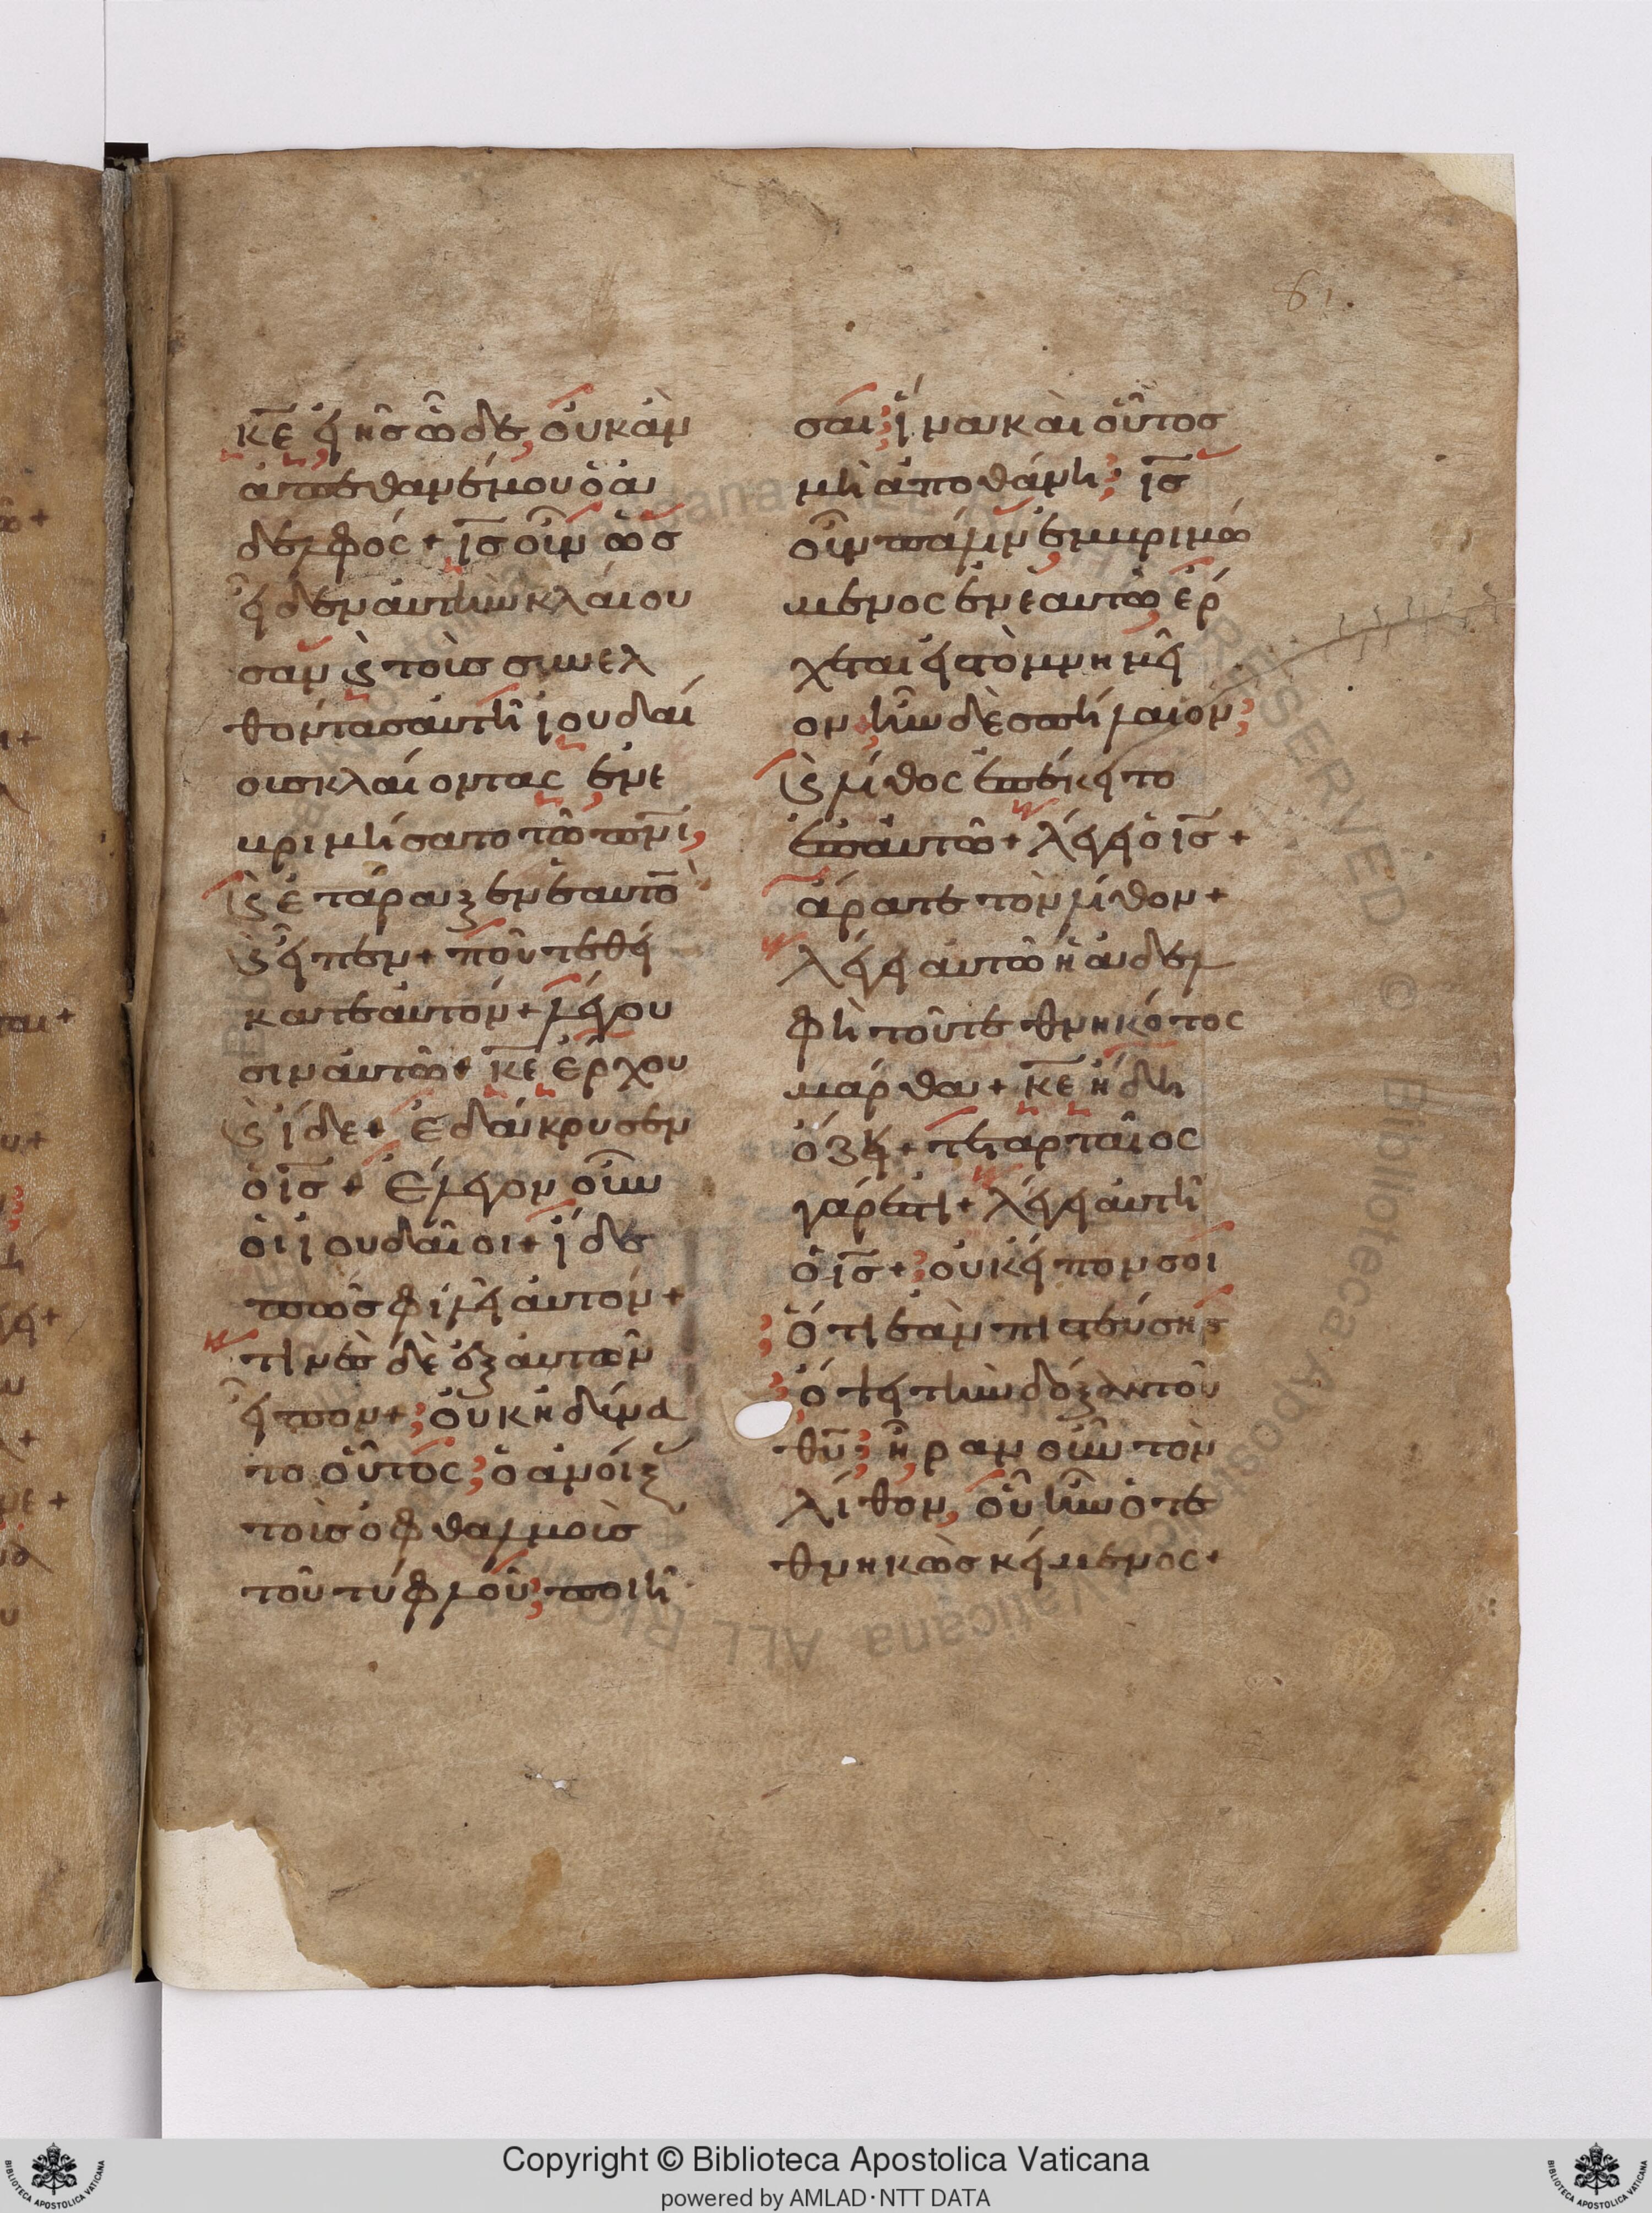 61.
κ̅ε̅ εἰ ἦς ὧδε, οὐκ ἂν
ἀπέθανέ μου ὁ ἀ
δελφός + ι̅ς̅ οὖν ὡς
εἶδεν αὐτὴν κλαίου
σαν ϗ τοὺσ συνελ
θόντασ αὐτῆ ἰουδαί
ουσ κλαίοντας ἐνε
βριμήσατο τῶ π̅ν̅ι,
ϗ ἐτάραξεν ἑαυτὸ
ϗ εἶπεν + ποῦ τεθεί
κατε αὐτόν + λέγου
σιν αὐτῶ + κ̅ε̅ ἔρχου
ϗ ἴδε + ἐδάκρυσεν
ὁ ι̅ς̅ + ἔλεγον οὖν
οἱ ἰουδαῖοι + ἴδε
πῶς φιλεῖ αὐτόν +
τινὲς δὲ ἐξ αὐτῶν
εἶπον + οὐκ ἠδύνα
το οὗτος; ὁ ἀνοίξ
τοὺσ ὀφθαλμοὺσ
τοῦ τυφλοῦ; ποιῆ
σαι; ἵνα καὶ οὗτοσ
μὴ ἀποθάνη; ι̅ς̅
οὖν πάλιν ἐμβριμώ
μενος ἐν ἑαυτῶ ἔρ
χεται εἰς τὸ μνημεῖ
ον, ἦν δὲ σπήλαιον;
ϗ λίθος ἐπέκειτο
ἐπ αὐτῶ + λέγει ὁ ι̅ς̅ +
ἄρατε τὸν λίθον +
λέγει αὐτῶ ἡ ἀδελ
φὴ τοῦ τεθνηκότος
μάρθα + κ̅ε̅ ἤδη
ὄζει + τεταρταῖος
γάρ ἐστι + λέγει αὐτῆ
ὁ ι̅ς̅ + οὐκ εἶπον σοι
ὅτι ἐὰν πιστεύσης
ὄψει τὴν δόξαν τοῦ
θ̅υ̅; ἦραν οὖν τὸν
λίθον, οὗ ἦν ὁ τε
θνηκὼς κείμενος +
Copyright © Biblioteca Apostolica Vaticana
powered by AMLAD·NTT DATA